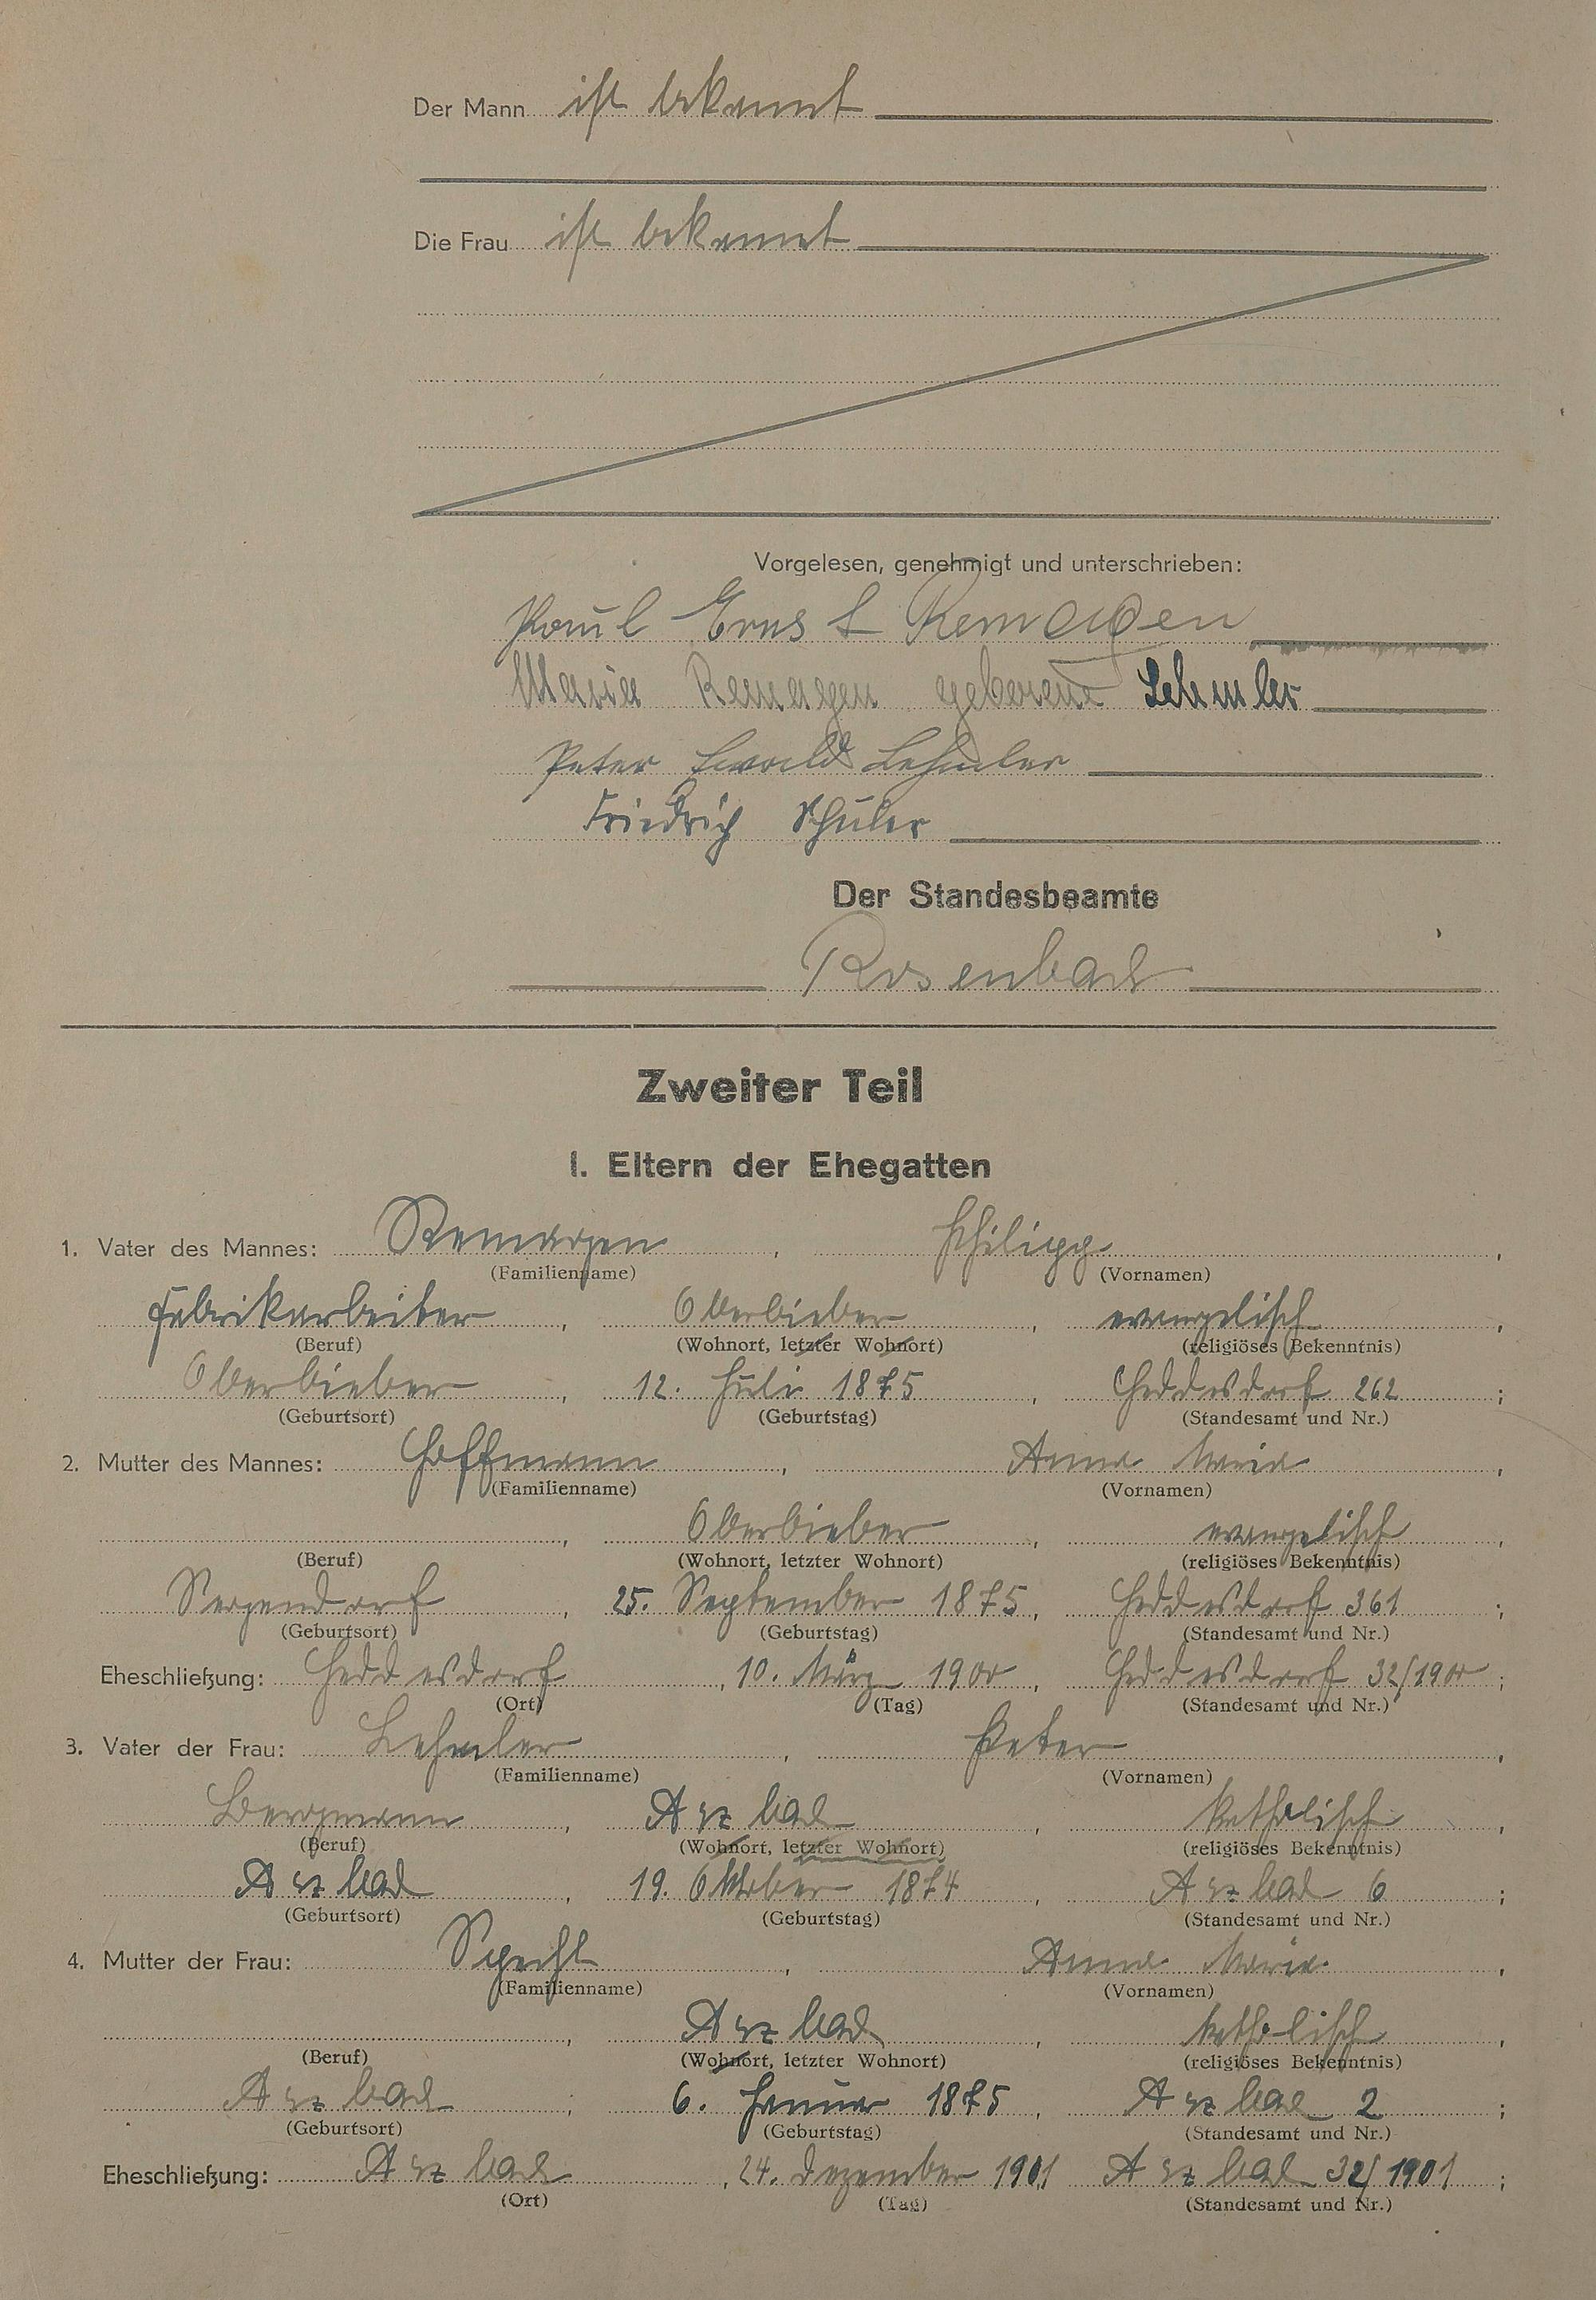 Der Mann ist bekannt
Die Frau ist bekannt
Vorgelesen, genehmigt und unterschrieben:
Paul Ernst Remagen
Maria Remagen geborene Lehmler
Peter Ewald Lehmler
Friedrich Schüler
Der Standesbeamte
Rosenbach
Zweiter Teil
I. Eltern der Ehegatten
1. Vater des Mannes: Remagen, Philipp,
(Familienname) (Vornamen)
Fabrikarbeiter, Oberbieber, evangelisch,
(Beruf) (Wohnort, letzter Wohnort) (religiöses Bekenntnis)
Oberbieber, 12. Juli 1875, Heddesdorf 262;
(Geburtsort) (Geburtstag) (Standesamt und Nr.)
2. Mutter des Mannes: Hoffmann, Anna Maria,
(Familienname) (Vornamen)
, Oberbieber, evangelisch,
(Beruf) (Wohnort, letzter Wohnort) (religiöses Bekenntnis)
Segendorf, 25. September 1875, Heddesdorf 361;
(Geburtsort) (Geburtstag) (Standesamt und Nr.)
Eheschließung: Heddesdorf, 10. März 1900, Heddesdorf 32/1900;
(Ort) (Tag) (Standesamt und Nr.)
3. Vater der Frau: Lehmler, Peter,
(Familienname) (Vornamen)
Bergmann, Arzbach, katholisch,
(Beruf) (Wohnort, letzter Wohnort) (religiöses Bekenntnis)
Arzbach, 19. Oktober 1874, Arzbach 6;
(Geburtsort) (Geburtstag) (Standesamt und Nr.)
4. Mutter der Frau: Specht, Anna Maria,
(Familienname) (Vornamen)
, Arzbach, katholisch,
(Beruf) (Wohnort, letzter Wohnort) (religiöses Bekenntnis)
Arzbach, 6. Januar 1875, Arzbach 2;
(Geburtsort) (Geburtstag) (Standesamt und Nr.)
Eheschließung: Arzbach, 24. Dezember 1901 Arzbach 32/1901;
(Ort) (Tag) (Standesamt und Nr.)